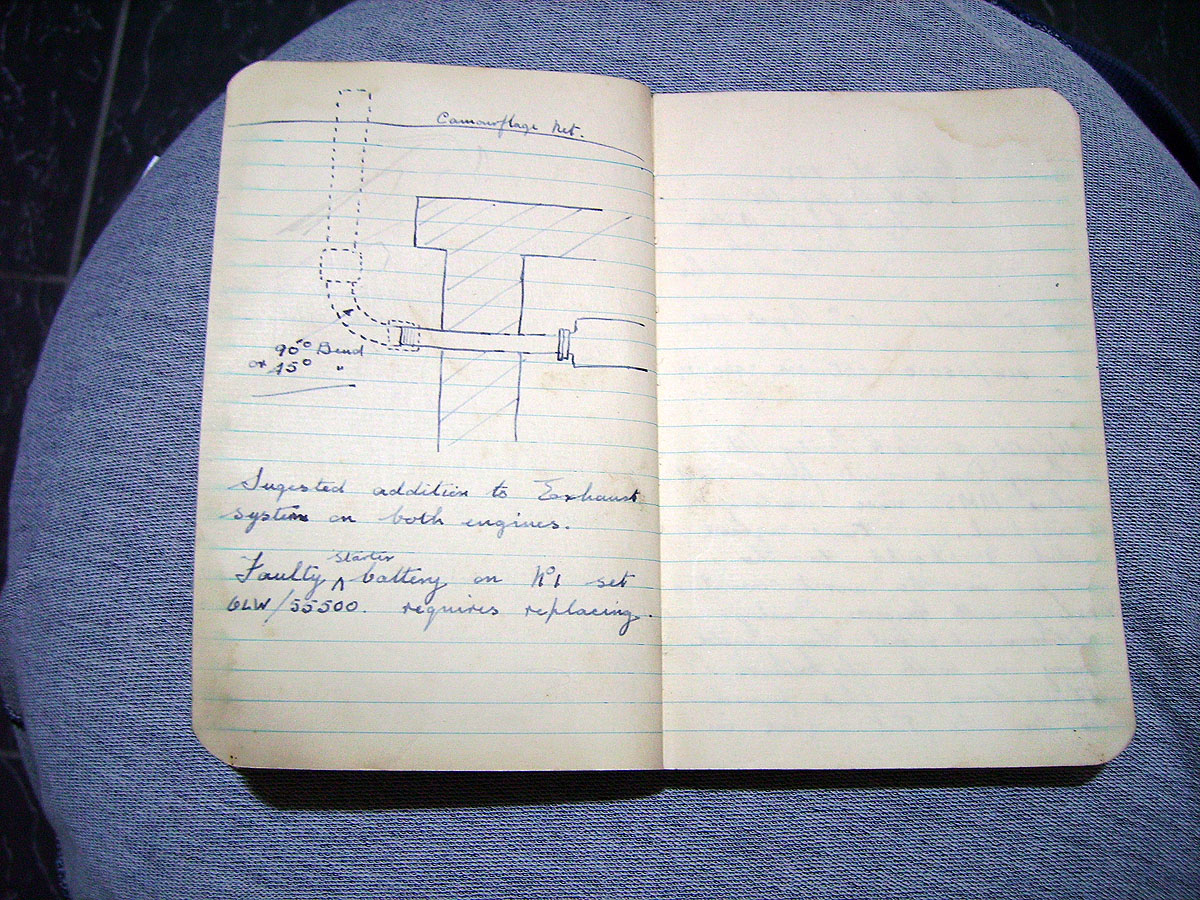 Camourflage Net.
90° Bend
or 45° "
Sugested addition to Exhaust
system on both engines.
Faulty starter battery on No1 set
6LW/55500. requires replacing.